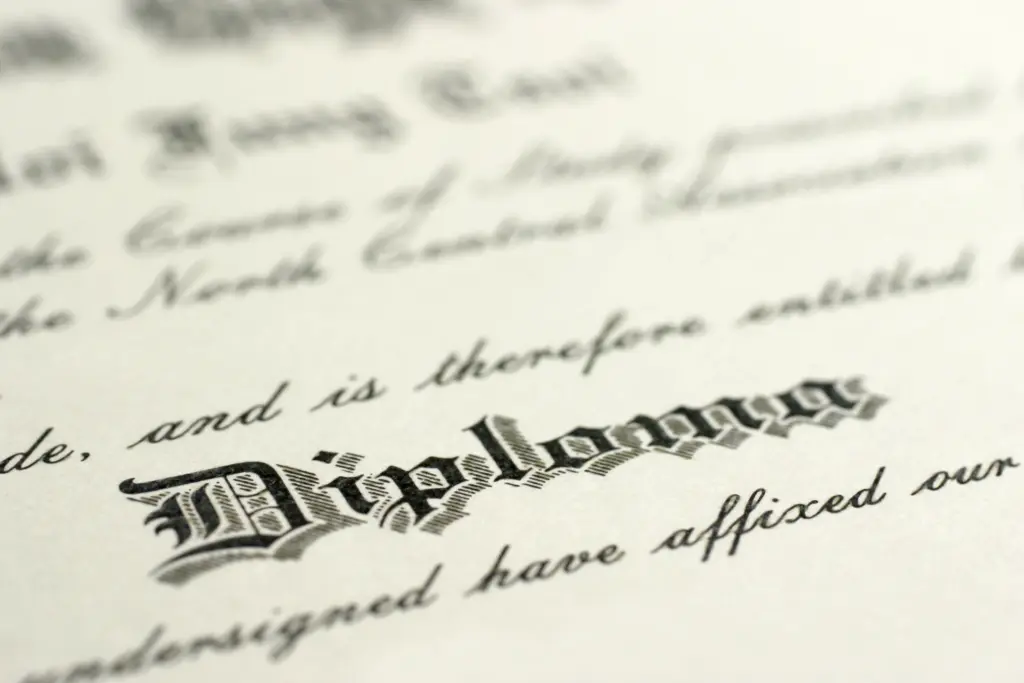 the Course of Study prescribed
the North Central
de, and is therefore entitled
Diploma
undersigned have affixed our